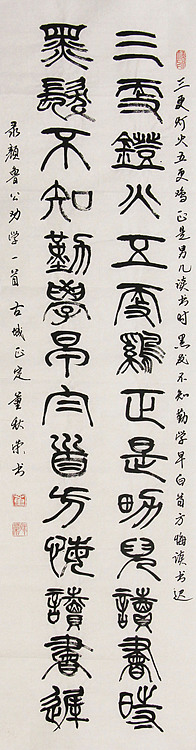 三更灯火五更鸡正是男儿读书时黑发不知勤学早白首方悔读书迟
三更鐙火五更鷄正是男兒讀書時
黑髮不知勤學早白首方悔讀書遲
录颜鲁公劝学一首 古城正定 董秋 书